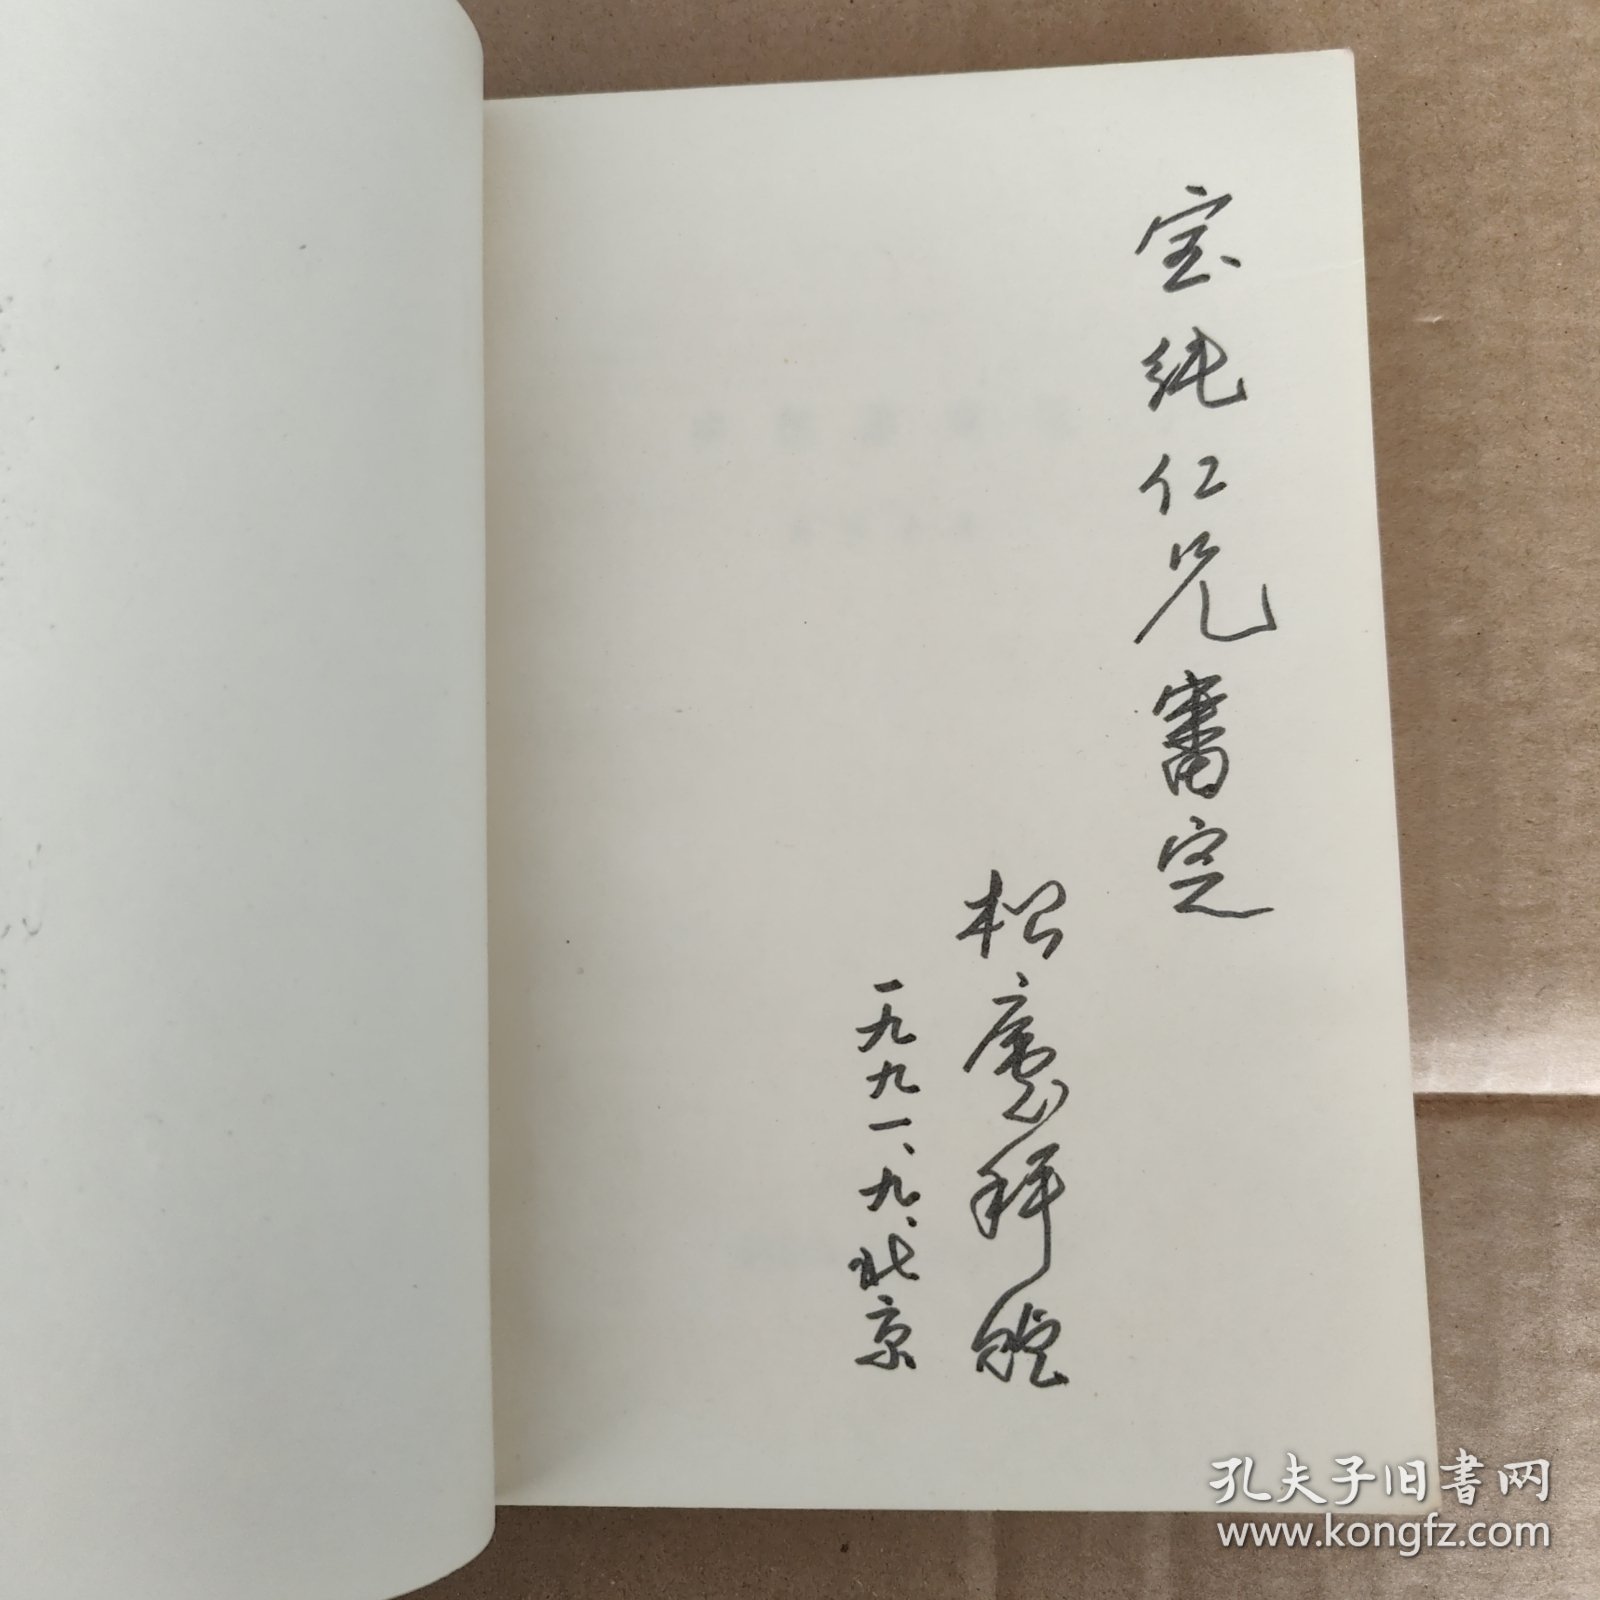 宝纯仁兄审定
松鹰拜赠
一九九一、九、北京
孔夫子旧书网
www.kongfz.com